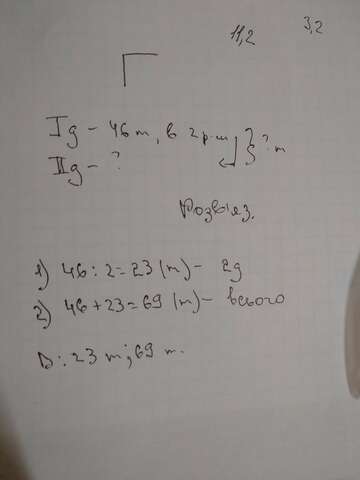 11,2 3,2
I д - 46 т, в 2 р. м } ? т
II д - ?
Розвяз.
1) 46 : 2 = 23 (т) - 2 д
2) 46 + 23 = 69 (т) - всього
В: 23 т; 69 т.